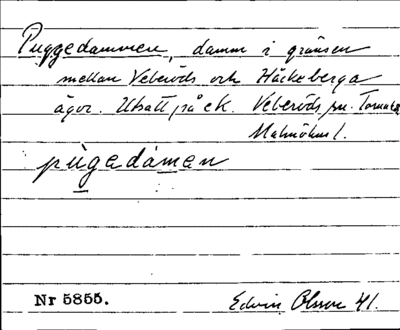 Puggedammen, damm i gränsen
mellan Veberöds och Häckeberga
ägor. Utsatt på ek. Veberöds sn. Torna hd
Malmöhus l.
pùgedàmen
Nr 5855.
Edvin Olsson 41.